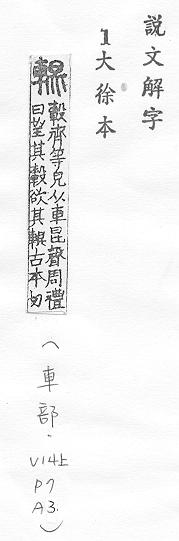 說文解字
1大徐本
輥 轂齊等皃从車昆聲周禮
曰望其轂欲其輥古本切
(車部·V14上 P7 A3.)